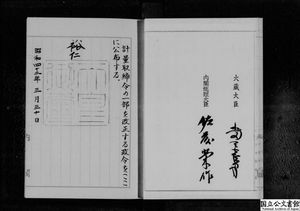 計量取締令の一部を改正する政令をここ
に公布する。
裕仁
昭和四十三年三月三十日
内閣総理大臣
佐藤榮作
大蔵大臣
国立公文書館
National Archives of Japan